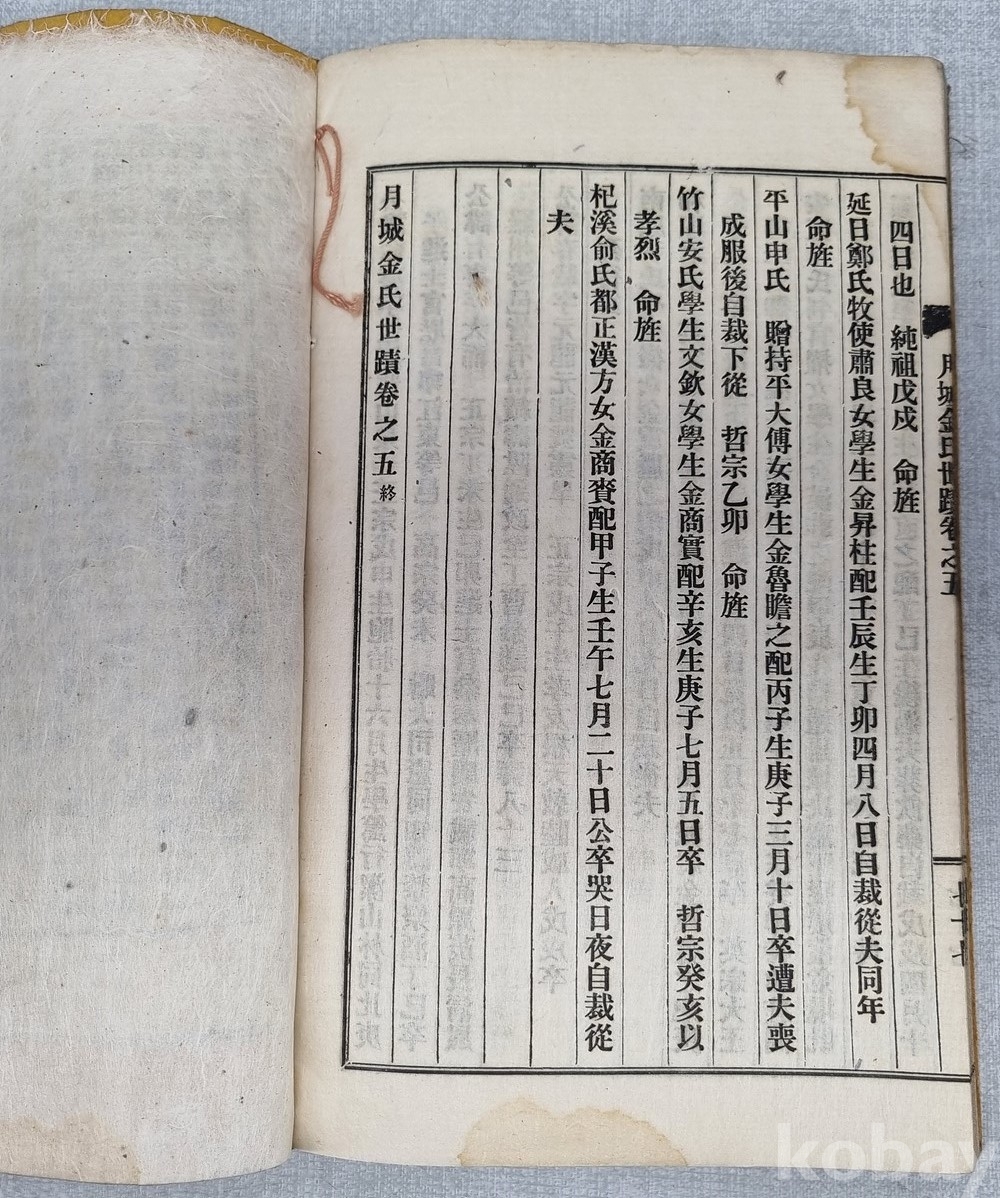 月城金氏世蹟卷之五
四日也 純祖戊戌 命旌
延日鄭氏牧使肅良女學生金昇柱配壬辰生丁卯四月八日自裁從夫同年
命旌
平山申氏 贈持平大傅女學生金魯瞻之配丙子生庚子三月十日卒遭夫喪
成服後自裁下從 哲宗乙卯 命旌
竹山安氏學生文欽女學生金商實配辛亥生庚子七月五日卒 哲宗癸亥以
孝烈 命旌
杞溪俞氏都正漢方女金商賚配甲子生壬午七月二十日公卒哭日夜自裁從
夫
月城金氏世蹟卷之五 終
kobay